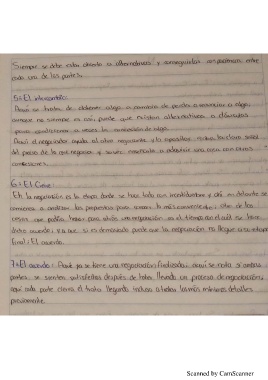 Siempre se debe estar abierto a alternativas y conseguirlas en conjunto entre
cada una de las partes.
5- El intercambio:
Aquí se trata de obtener algo a cambio de perder o renunciar a algo,
aunque no siempre es así, puede que existan alternativas o cláusulas
para condicionar a veces la concesión de algo.
Aquí el negociador ayuda al otro negociante y lo
del peso de la que negocian y saben renunciar a adquirir una cosa con otras
concesiones.
6- El Cierre
En la negociación es la etapa donde se hace todo con incertidumbre y ahí en delante se
comienza a analizar las propuestas para sacar la más conveniente, otra de las
cosas que podría traer para atrás una negociación es el tiempo en el cual se lleva
dicho acuerdo, ya que si es demasiado puede que la negociación no llegue a su etapa
final: El acuerdo.
7- El acuerdo: Aquí ya se tiene una negociación finalizada, aquí se nota si ambas
partes se sienten satisfechas después de haber llevado un proceso de negociación;
aquí cada parte cierra el trato llegando incluso a todos los más mínimos detalles
previamente.
Scanned by CamScanner